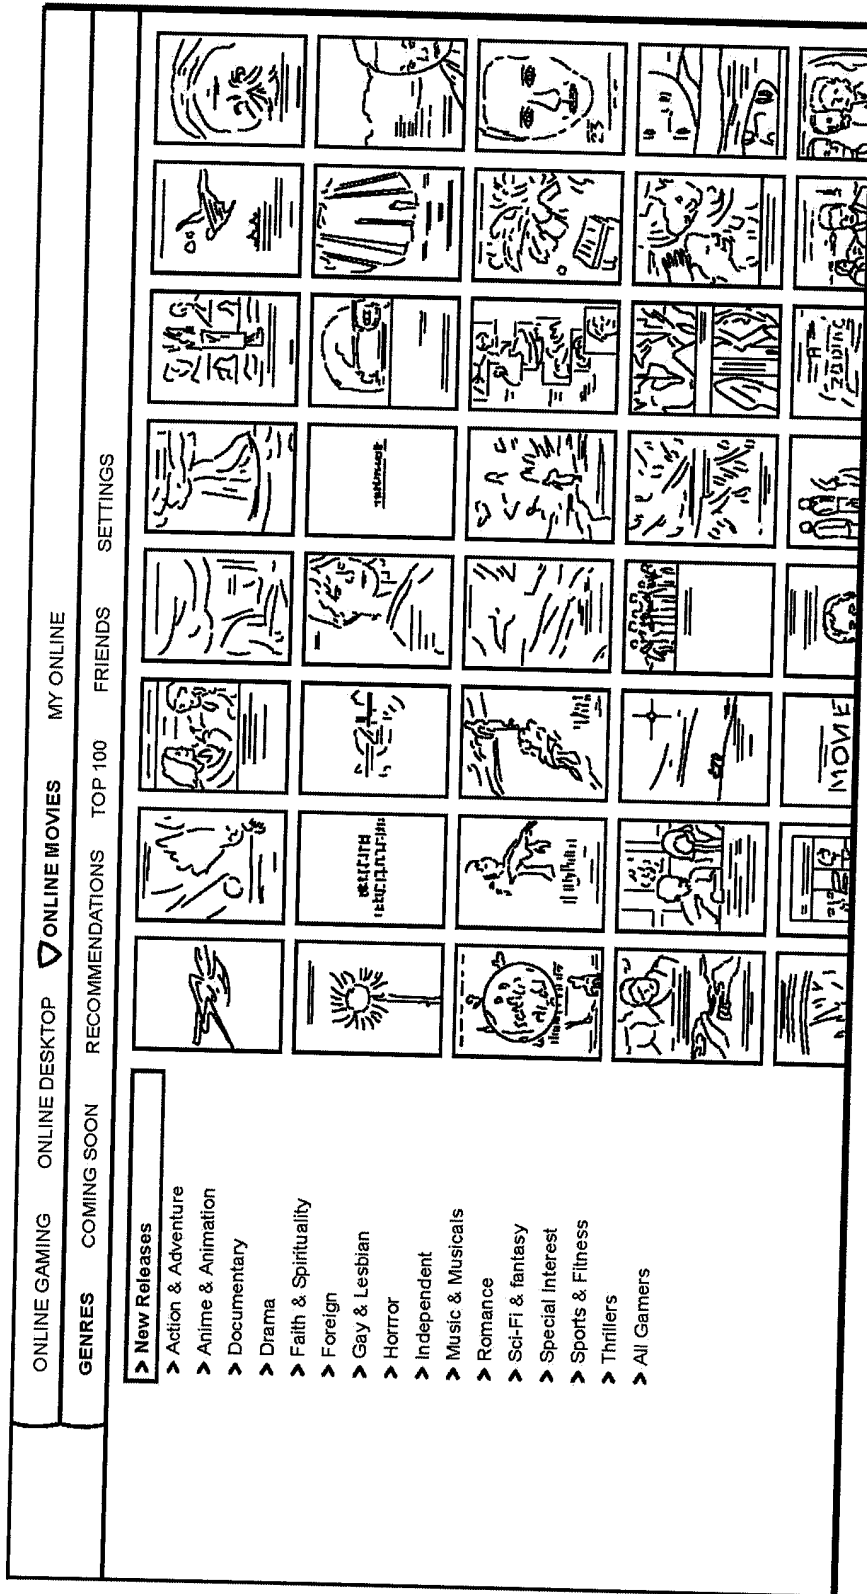 ONLINE GAMING ONLINE DESKTOP ONLINE MOVIES MY ONLINE
GENRES COMING SOON RECOMMENDATIONS TOP 100 FRIENDS SETTINGS
> New Releases
> Action & Adventure
> Anime & Animation
> Documentary
> Drama
> Faith & Spirituality
> Foreign
> Gay & Lesbian
> Horrror
> Independent
> Music & Musicals
> Romance
> Sci-Fi & fantasy
> Special Interest
> Sports & Fitness
> Thrillers
> All Gamers
23
MOVIE
A
ZODIAC